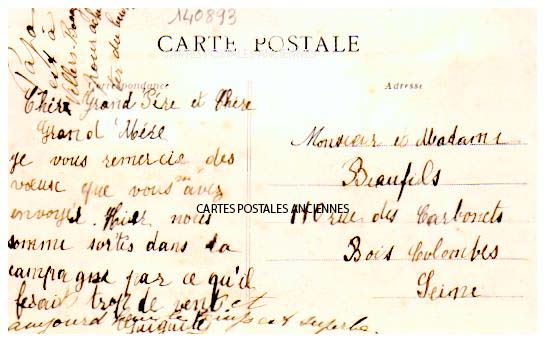 140893
CARTE POSTALE
Correspondance
Adresse
Papa
est à
Villers
Cher Grand Père et Chère
Grand Mère
Je vous remercie des
vœux que vous m'avez
envoyés. Hier nous
somme sortis dans la
campagne par ce qu'il
fesait trop de vent et
aujourd superbe.
Monsieur et Madame
Beaufils
rue des Carbonets
Bois Colombes
Seine
CARTES POSTALES ANCIENNES